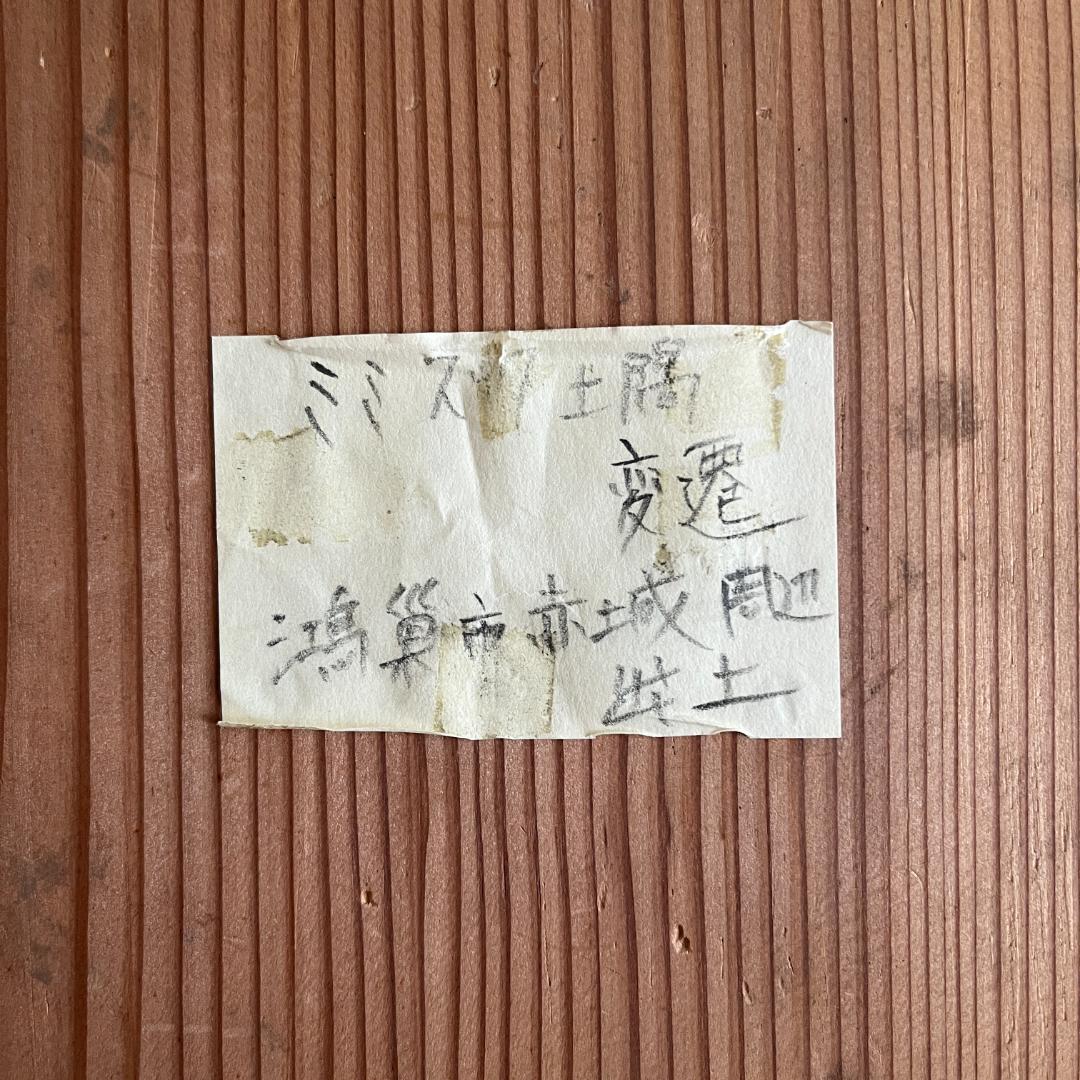 ミミズク土隅
変遷
鴻巣市赤城周辺
出土